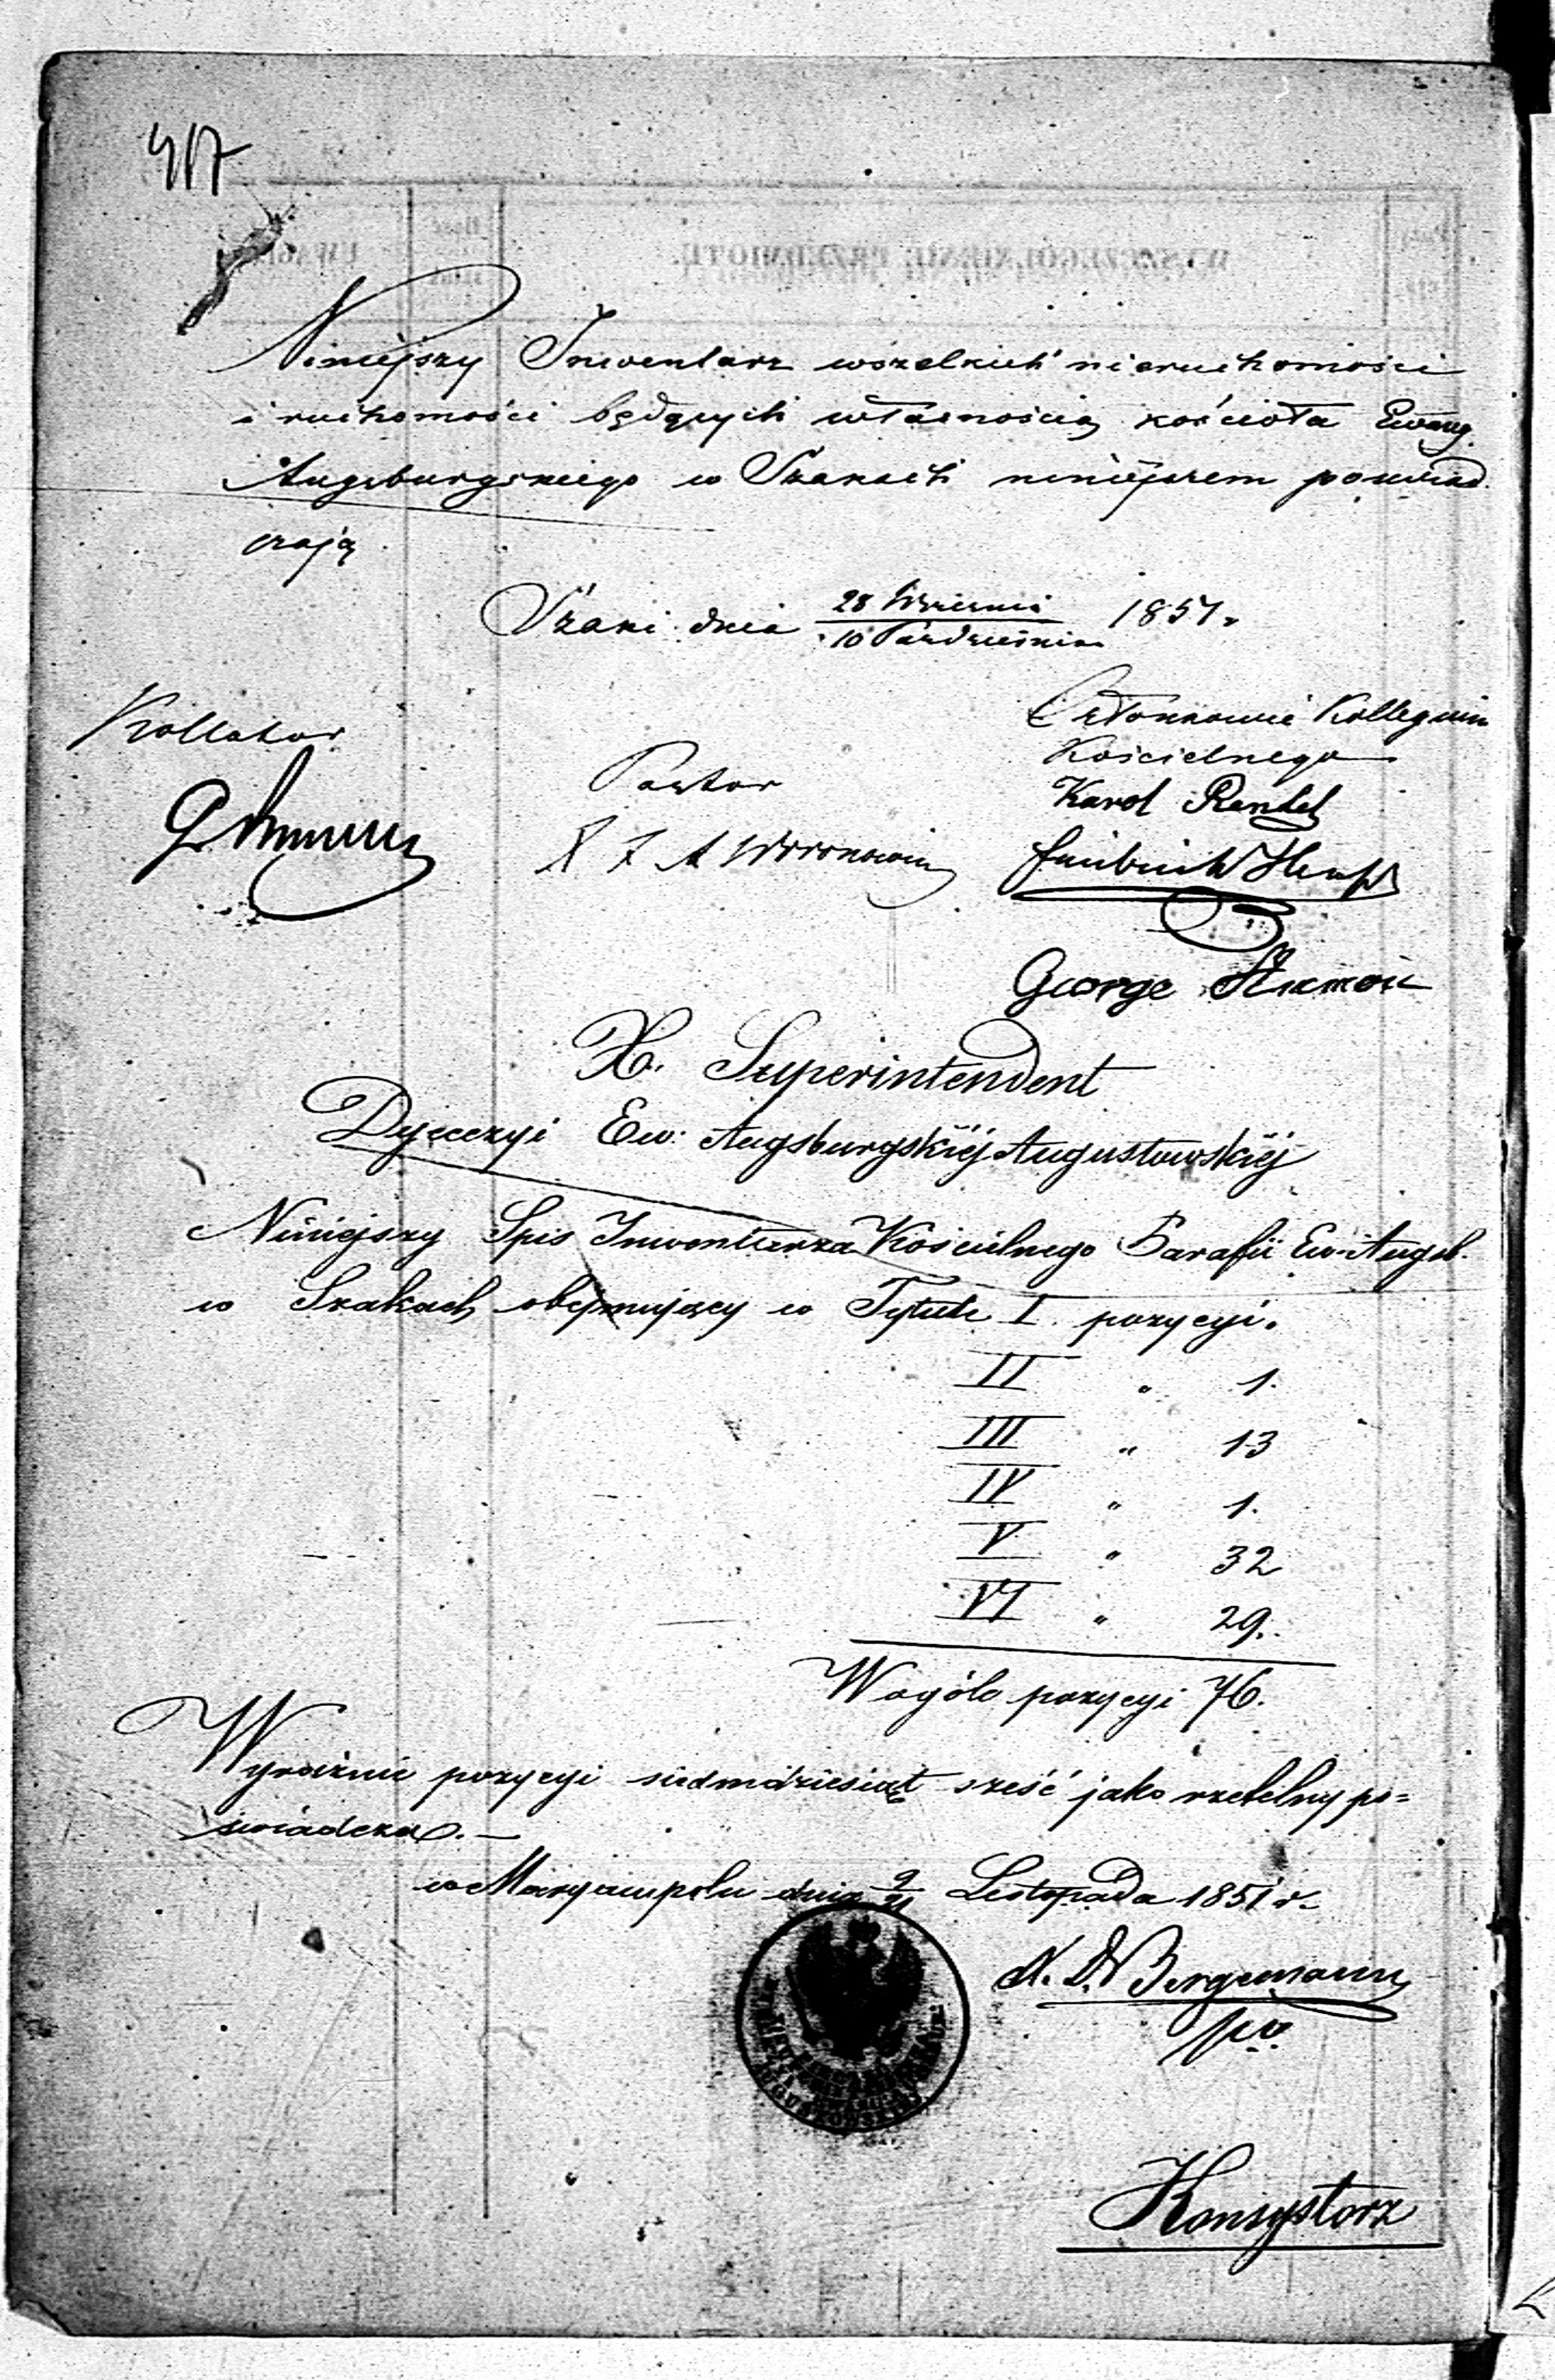 417
Niniejszy Inwentarz wszelkich nieruchomości
i ruchomości będących własnością kościoła Ewang.
Augsburgskiego w Szakach niniejszem poświad
czają
Szaki dnia 28 Września / 10 Października 1851 r.
Kollator
Członkowie Kollegium
Kościelnego
Pastor
Karol Rentel
George
X. Superintendent
Dyecezyi Ew: Augsburgskiéj Augustowskiéj
Niniejszy Spis Inwentarza Kościelnego Parafii Ew: Augsb.
w Szakach obejmujący w Tytule I. pozycyi.
II " 1.
III " 13
IV " 1.
V " 32
VI " 29.
Wogóle pozycyi 76.
Wyraźnie pozycyi siedmdziesiąt sześć jako rzetelny po=
świadcza. —
w Maryampolu dnia 9/21 Listopada 1851 r.
Bergemann
Konsystorz